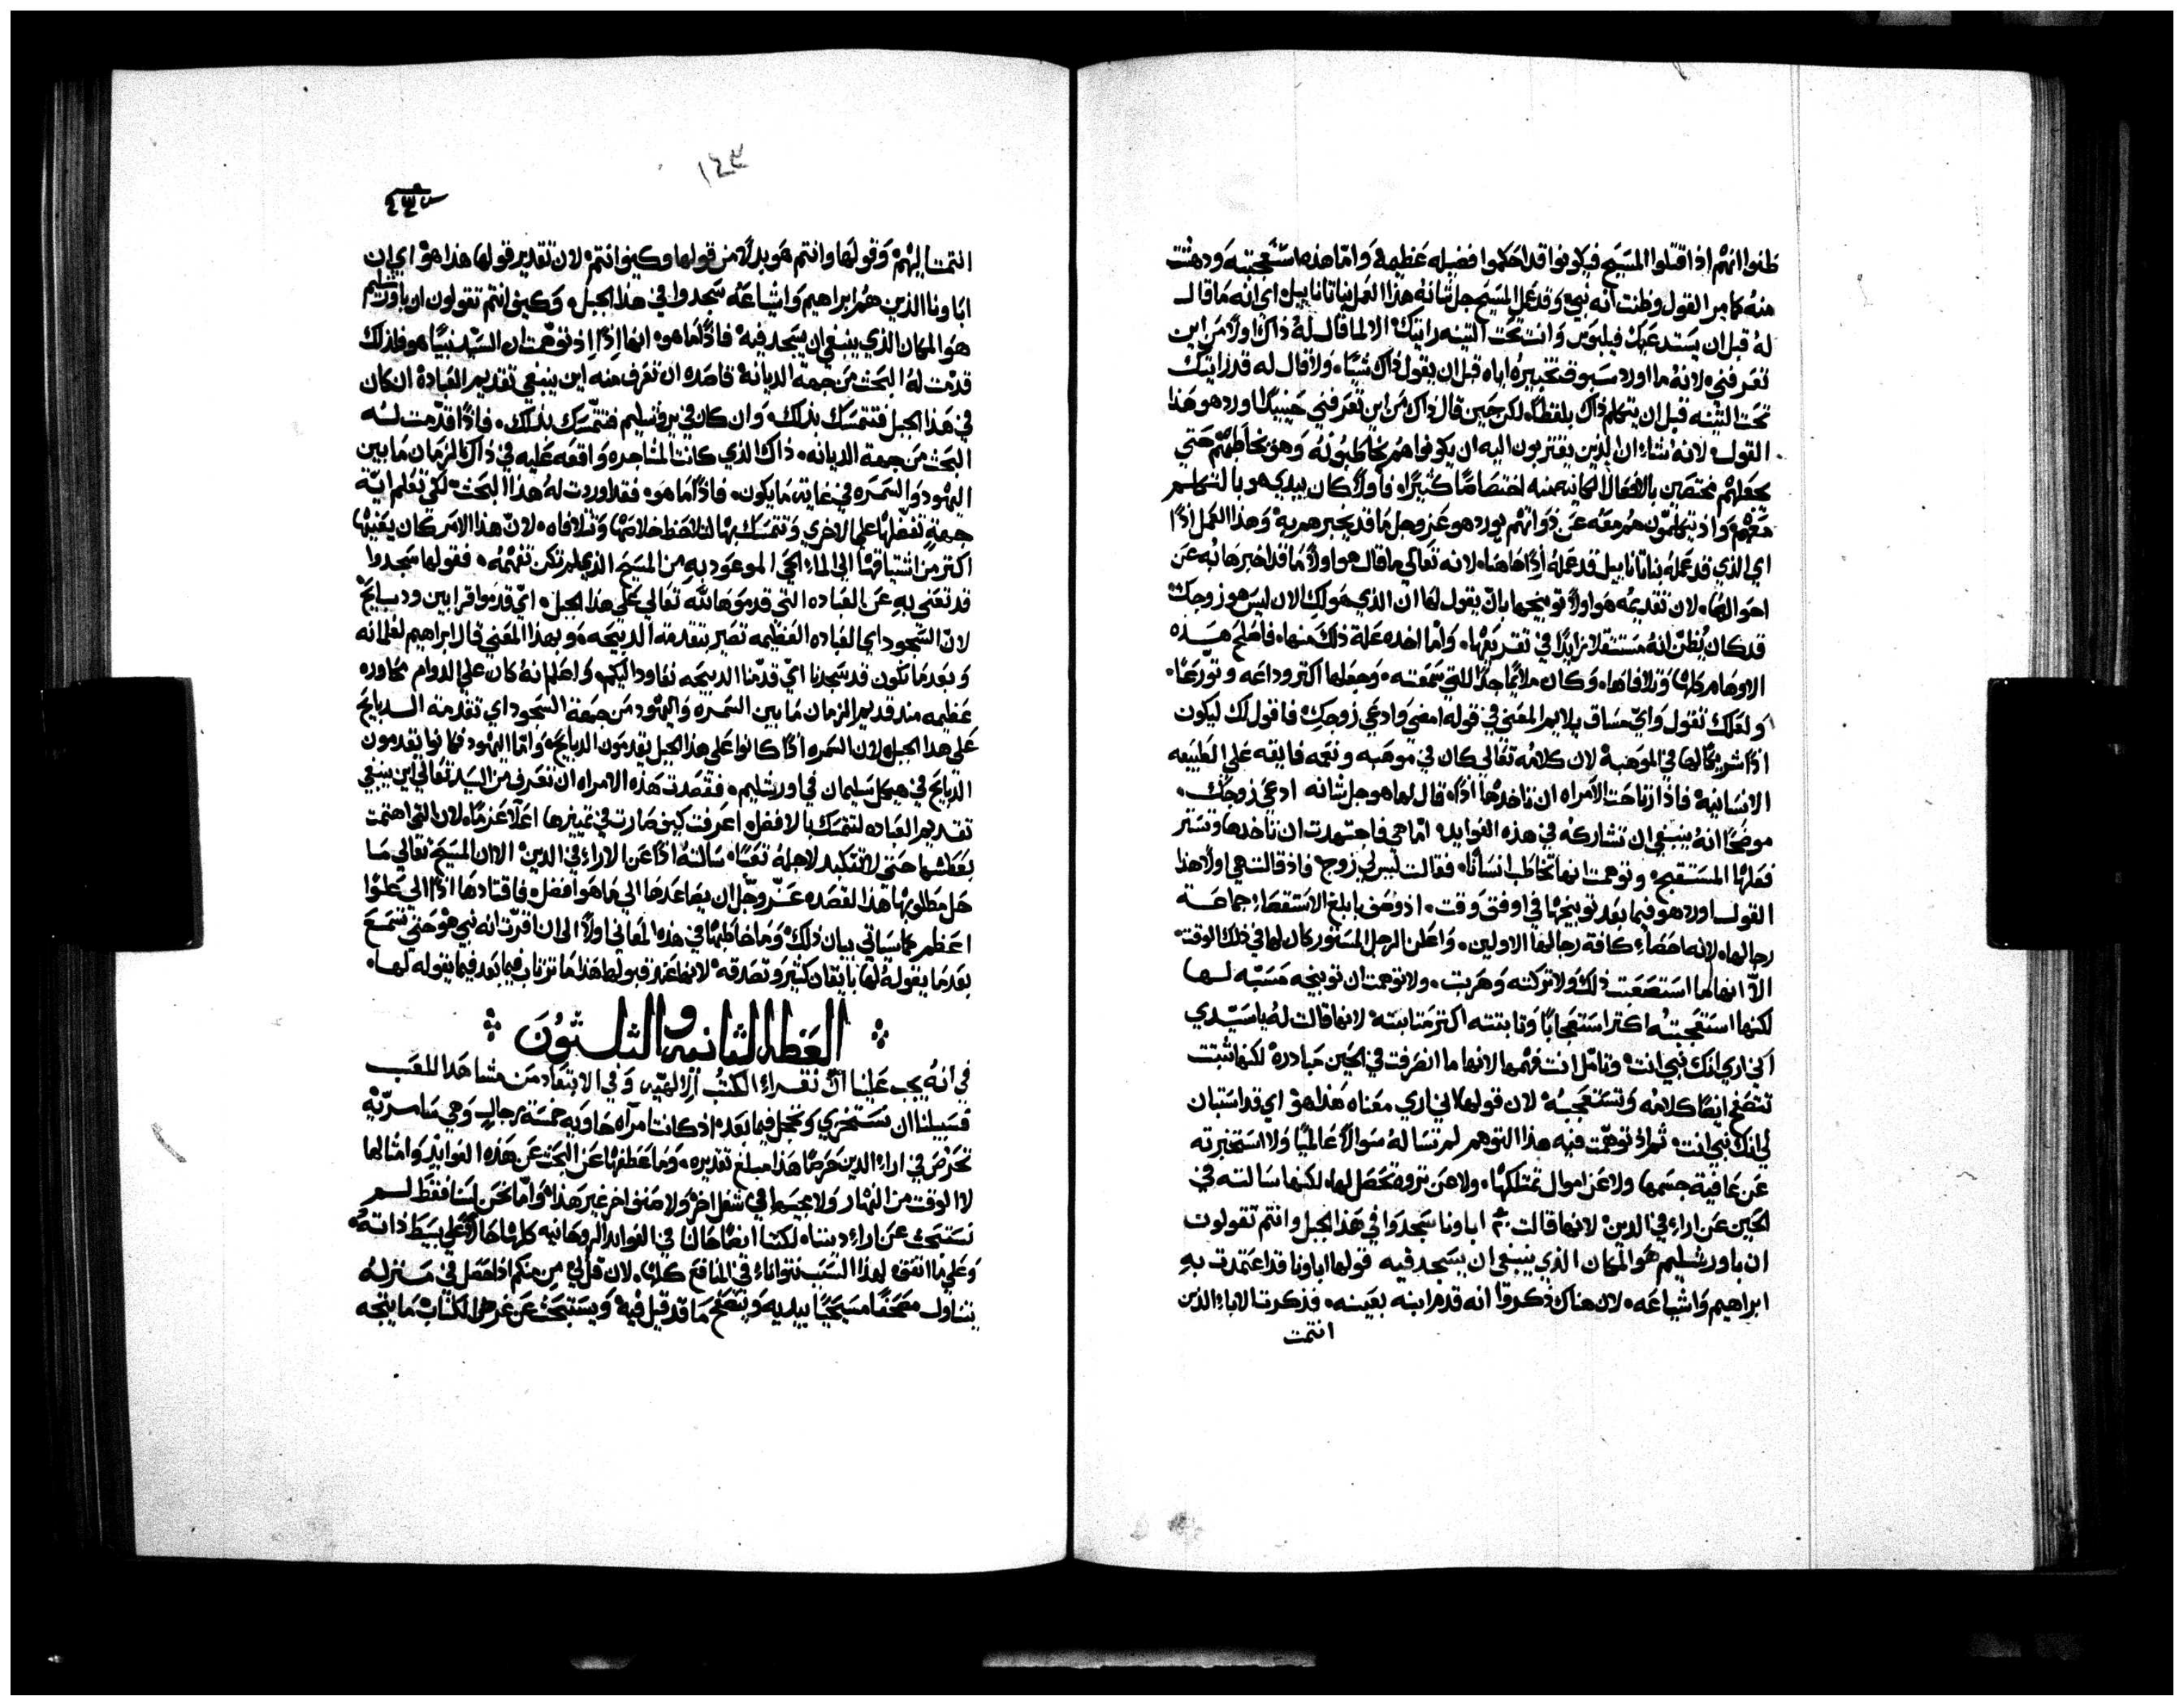 ظنوا انهم اذا قتلوا المسيح فيكونوا قد احكموا فضيله عظيمة وامّا هذه استعجبته ودهشت
منه كما مر القول وظنت انه نبي وقد عمل المسيح جل ثنانه هذا العمل بناثانابيل اي انه ما قال
له قبل ان يستدعيك فيلبوس وانت تحت التينه رايتك الا لما قال له ذاك اولًا من اين
تعرفني لانه ما اورد سبوق تخبيره اياه قبل ان يقول ذاك شيًا ولا قال له قد رايتك
تحت التينه قبل ان يتكلم ذاك بلفظه لكن حين قال ذاك من اين تعرفني حينيذ اورد هو هذا
القول لانه شاء ان الذين يقتربون اليه ان يكونوا هم يخاطبونه وهو يخاطبهم حتي
يجعلهم مختصين بالافعال الكاينه منه اختصاصًا كثيرًا فاولًا كان يبدي هو بالتكلم
معهم واذ يتكلمون هم معه عن ذواتهم يورد هو عز وجل ما قد يخبرهم به وهذا العمل اذًا
اي الذي قد عمله بناثانابيل قد عمله اذًا هاهنا لانه تعالي ما قال هو اولًا ما قد اخبرها به عن
احوالها لان تقديمه هو اولًا توبيخها بان يقول لها ان الذي هو لك الان ليس هو زوجك
قد كان يُظن انه مستثقلا زايدًا في تقريعها وامّا اخذه علة ذلك منها فاصلح هذه
الاوهام كلها وتلافاها وكان ملايمًا جدًا للتي سمعته وجعلها اكثر وداعه وتورعًا
ولعلك تقول واي مساق يلايم المعني في قوله امضي وادعي زوجك فاقول لك ليكون
اذًا شريكًا لها في الموهبة لان كلامه تعالي كان في موهبه ونعمه فايقه علي الطبيعه
الانسانية فاذا ارتاحت الامراه ان تاخذها اذًا قال لها هو جل شانه ادعي زوجك
موضحًا انه ينبغي ان تشاركه في هذه الفوايد امّا هي فاجتهدت ان تاخذها وتستر
فعلها المستقبح وتوهمت انها تخاطب انسانًا فقالت ليس لي زوج فاذ قالت هي اولًا هذا
القول اورد هو فيما بعد توبيخها في اوفق وقت اذ وضح بابلغ الاستقصاء جماعة
رجالها لانه احصاء كافة رجالها الاولين واعلن الرجل المستور كان لها في ذلك الوقت
الّا انها لما استصعبت ذلك ولا تركته وهربت ولا توهمت ان توبيخه مسبّه لها
لكنها استعجبته اكثر استعجابًا وثابتته اكثر مثابتة لانها قالت له يا سيّدي
اني اري انك نبي انت وتامل انت فهمها لانها ما انصرفت في الحين مبادرة لكنها ثبتت
تتصفح ايضًا كلامه وتستعجبه لان قولها اني اري معناه هذا هو اي قد استبان
لي انك نبي انت ثم اذ توهمت فيه هذا التوهم لم تساله سوالًا عالميًا ولا استخبرته
عن عافية جسمها ولا عن اموال تمتلكها ولا عن ثروة تحصل لها لكنها سالته في
الحين عن اراء في الدين لانها قالت اباونا سجدوا في هذا الجبل وانتم تقولون
ان باورشليم هو المكان الذي ينبغي ان يسجد فيه قولها اباونا قد اعتمدت به
ابراهيم واشياعه لان هناك ذكروا انه قدم ابنه بعينه فذكرت الاباء الذين
انتمت
١٤٣
انتمت اليهم وقولها وانتم هو بدلًا من قولها وكيف انتم لان تقدير قولها هذا هو اي ان
اباونا الذين هم ابراهيم واشياعه سجدوا في هذا الجبل وكيف انتم تقولون ان باورشليم
هو المكان الذي ينبغي ان يسجد فيه فاذًا ما هو انها اذًا اذ توهمت ان السيّد نبيًا هو فلذلك
قدمت له البحث من جهة الديانة قاصده ان تعرف منه اين ينبغي تقديم العبادة ان كان
في هذا الجبل فتتمسك بذلك وان كان في يروشليم فتتمسك بذلك فاذًا قدّمت له
البحث من جهة الديانه ذاك الذي كانت المشاجره واقعه عليه في ذاك الزمان ما بين
اليهود والسمره في غاية ما يكون فاذًا ما هو فقد اوردت له هذا البحث لكي تعلم ايّة
جهة تفضّلها علي الاخري وتتمسك بها لتلاحظ خلاصها وتتلافاه لان هذا الامر كان يعنيها
اكثر من اشتياقها الي الماء الحي الموعود به من المسيح الذي لم تكن تفهمه فقولها سجدوا
قد تعني به عن العباده التي قدموها لله تعالي علي هذا الجبل اي قدموا قرابين ودبايح
لان السجود اي العباده العظيمه تصير بتقدمة الدبيحه وبهذا المعني قال ابراهيم لغلمانه
وبعد ما نكون قد سجدنا اي قدّمنا الدبيحه نعاود اليكم واعلم انه كان علي الدوام محاوره
عظيمه مند قديم الزمان ما بين السمره واليهود من جهة السجود اي تقدمة الدبايح
علي هدا الجبل لان السمره اذًا كانوا علي هذا الجبل يقدمون الدبايح وامّا اليهود فكانوا يقدمون
الدبايح في هيكل سليمان في اورشليم فقصدت هذه الامراه ان تعرف من السيّد تعالي اين ينبغي
تقديم العباده لتتمسك بالافضل اعرفت كيف صارت في تمييزها اعلا عزمًا لان التي اهتمت
بعطشها حتي لا تتكبد لاجله تعبًا سالته اذًا عن الاراء في الدين الا ان المسيح تعالي ما
حل مطلوبها هذا لقصده عزّ وجلّ ان يصاعدها الي ما هو افضل فاقتادها اذًا الي علوًا
اعظم كما سياتي بيان ذلك وما خاطبها في هده المعاني اولًا الي ان اقرّت انه نبي هو حتي تسمع
بعد ما يقوله لها بايقان كثير وتصدقه لانها عند قبولها هذا ما ترتاب فيما بعد فيما يقوله لها
العظه الثانيه والثلثون
في انه يجب علينا ان نقراء الكتب الالهيّه وفي الابتعاد من مشاهدا الملعب
فسبيلنا ان نستخزي ونخجل فيما بعد اذ كانت امراه حاويه خمسة رجال وهي سامريّه
تحرص في اراء الدين حرصًا هذا مبلغ تقديره وما عطفها عن البحث عن هذه الفوايد وامثالها
لا الوقت من النهار ولا مجيها في شغل اخر ولا صنف اخر غير هذا وامّا نحن لسنا فقط لم
نستبحث عن اراء ديننا لكننا ايضًا حالنا في الفوايد الروحانيه كلها حالًا علي بسيط ذاته
وعلي ما اتفق لهذا السبب نتوانا في المنافع كلها لان قل لي من منكم اذا حصل في منزله
يتناول مصحفًا مسيحيًا بيديه ويتصفح ما قد قيل فيه ويستبحث عن غرض الكتاب ما يتجه